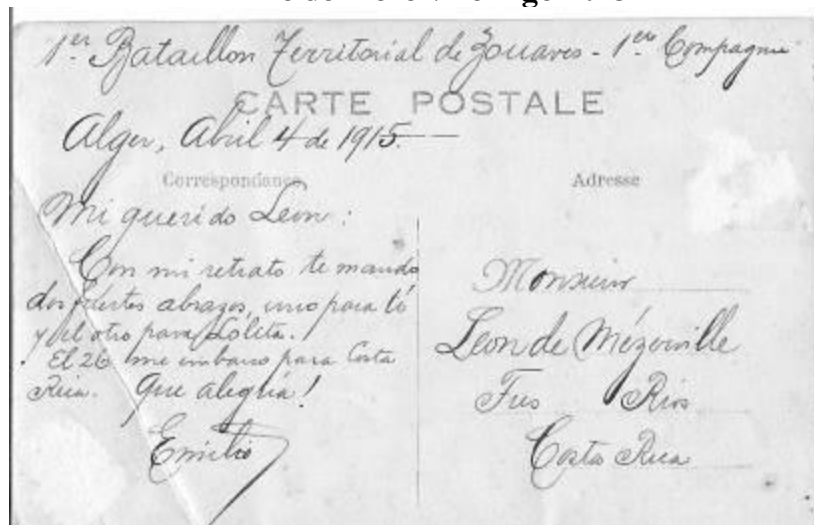 1er Bataillon Territorial de Zouaves - 1ere Compagnie
CARTE POSTALE
Alger, Abril 4 de 1915.
Correspondance
Adresse
Mi querido Leon:
Con mi retrato te mando
dos fuertes abrazos, uno para tí
y el otro para Lolita.
El 26 me embarco para Costa
Rica. Que alegría!
Emilio
Monsieur
Leon de Mézerville
Tres Rios
Costa Rica